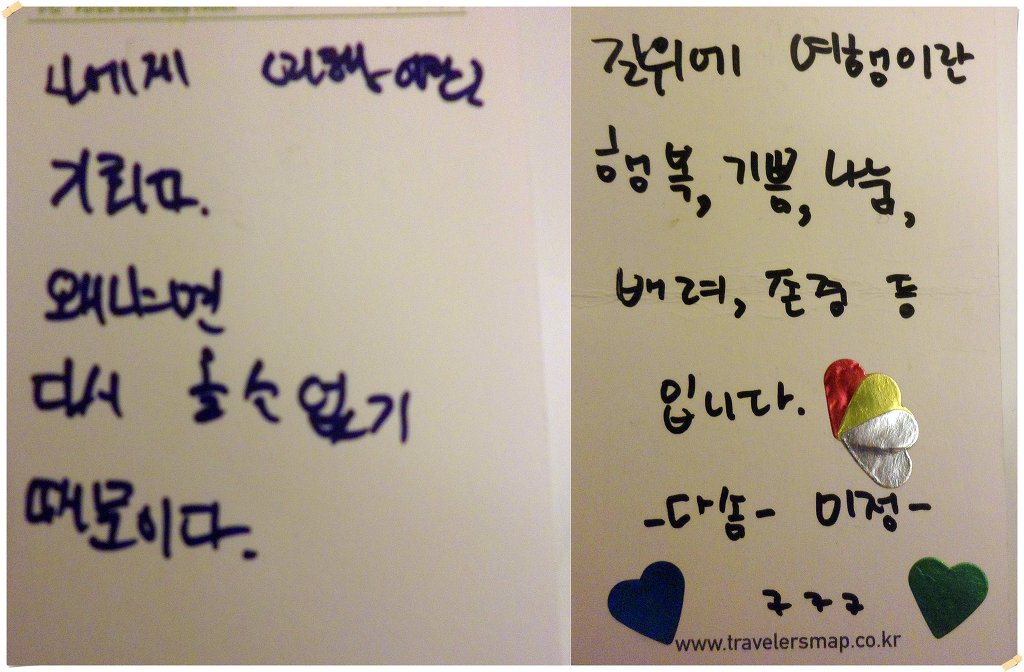 나에게
기회다.
왜냐하면
다시 올 수 없기
때문이다.
길위에 여행이란
행복, 기쁨, 나눔,
배려, 존중 등
입니다.
-다솜- 미정-
ㅋㅋㅋ
www.travelersmap.co.kr